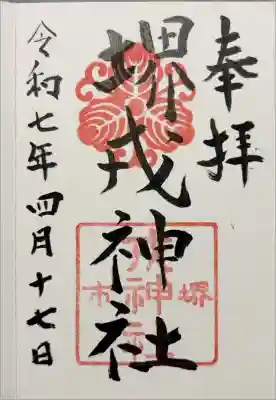 奉拝
堺戎神社
令和七年四月十七日
堺市